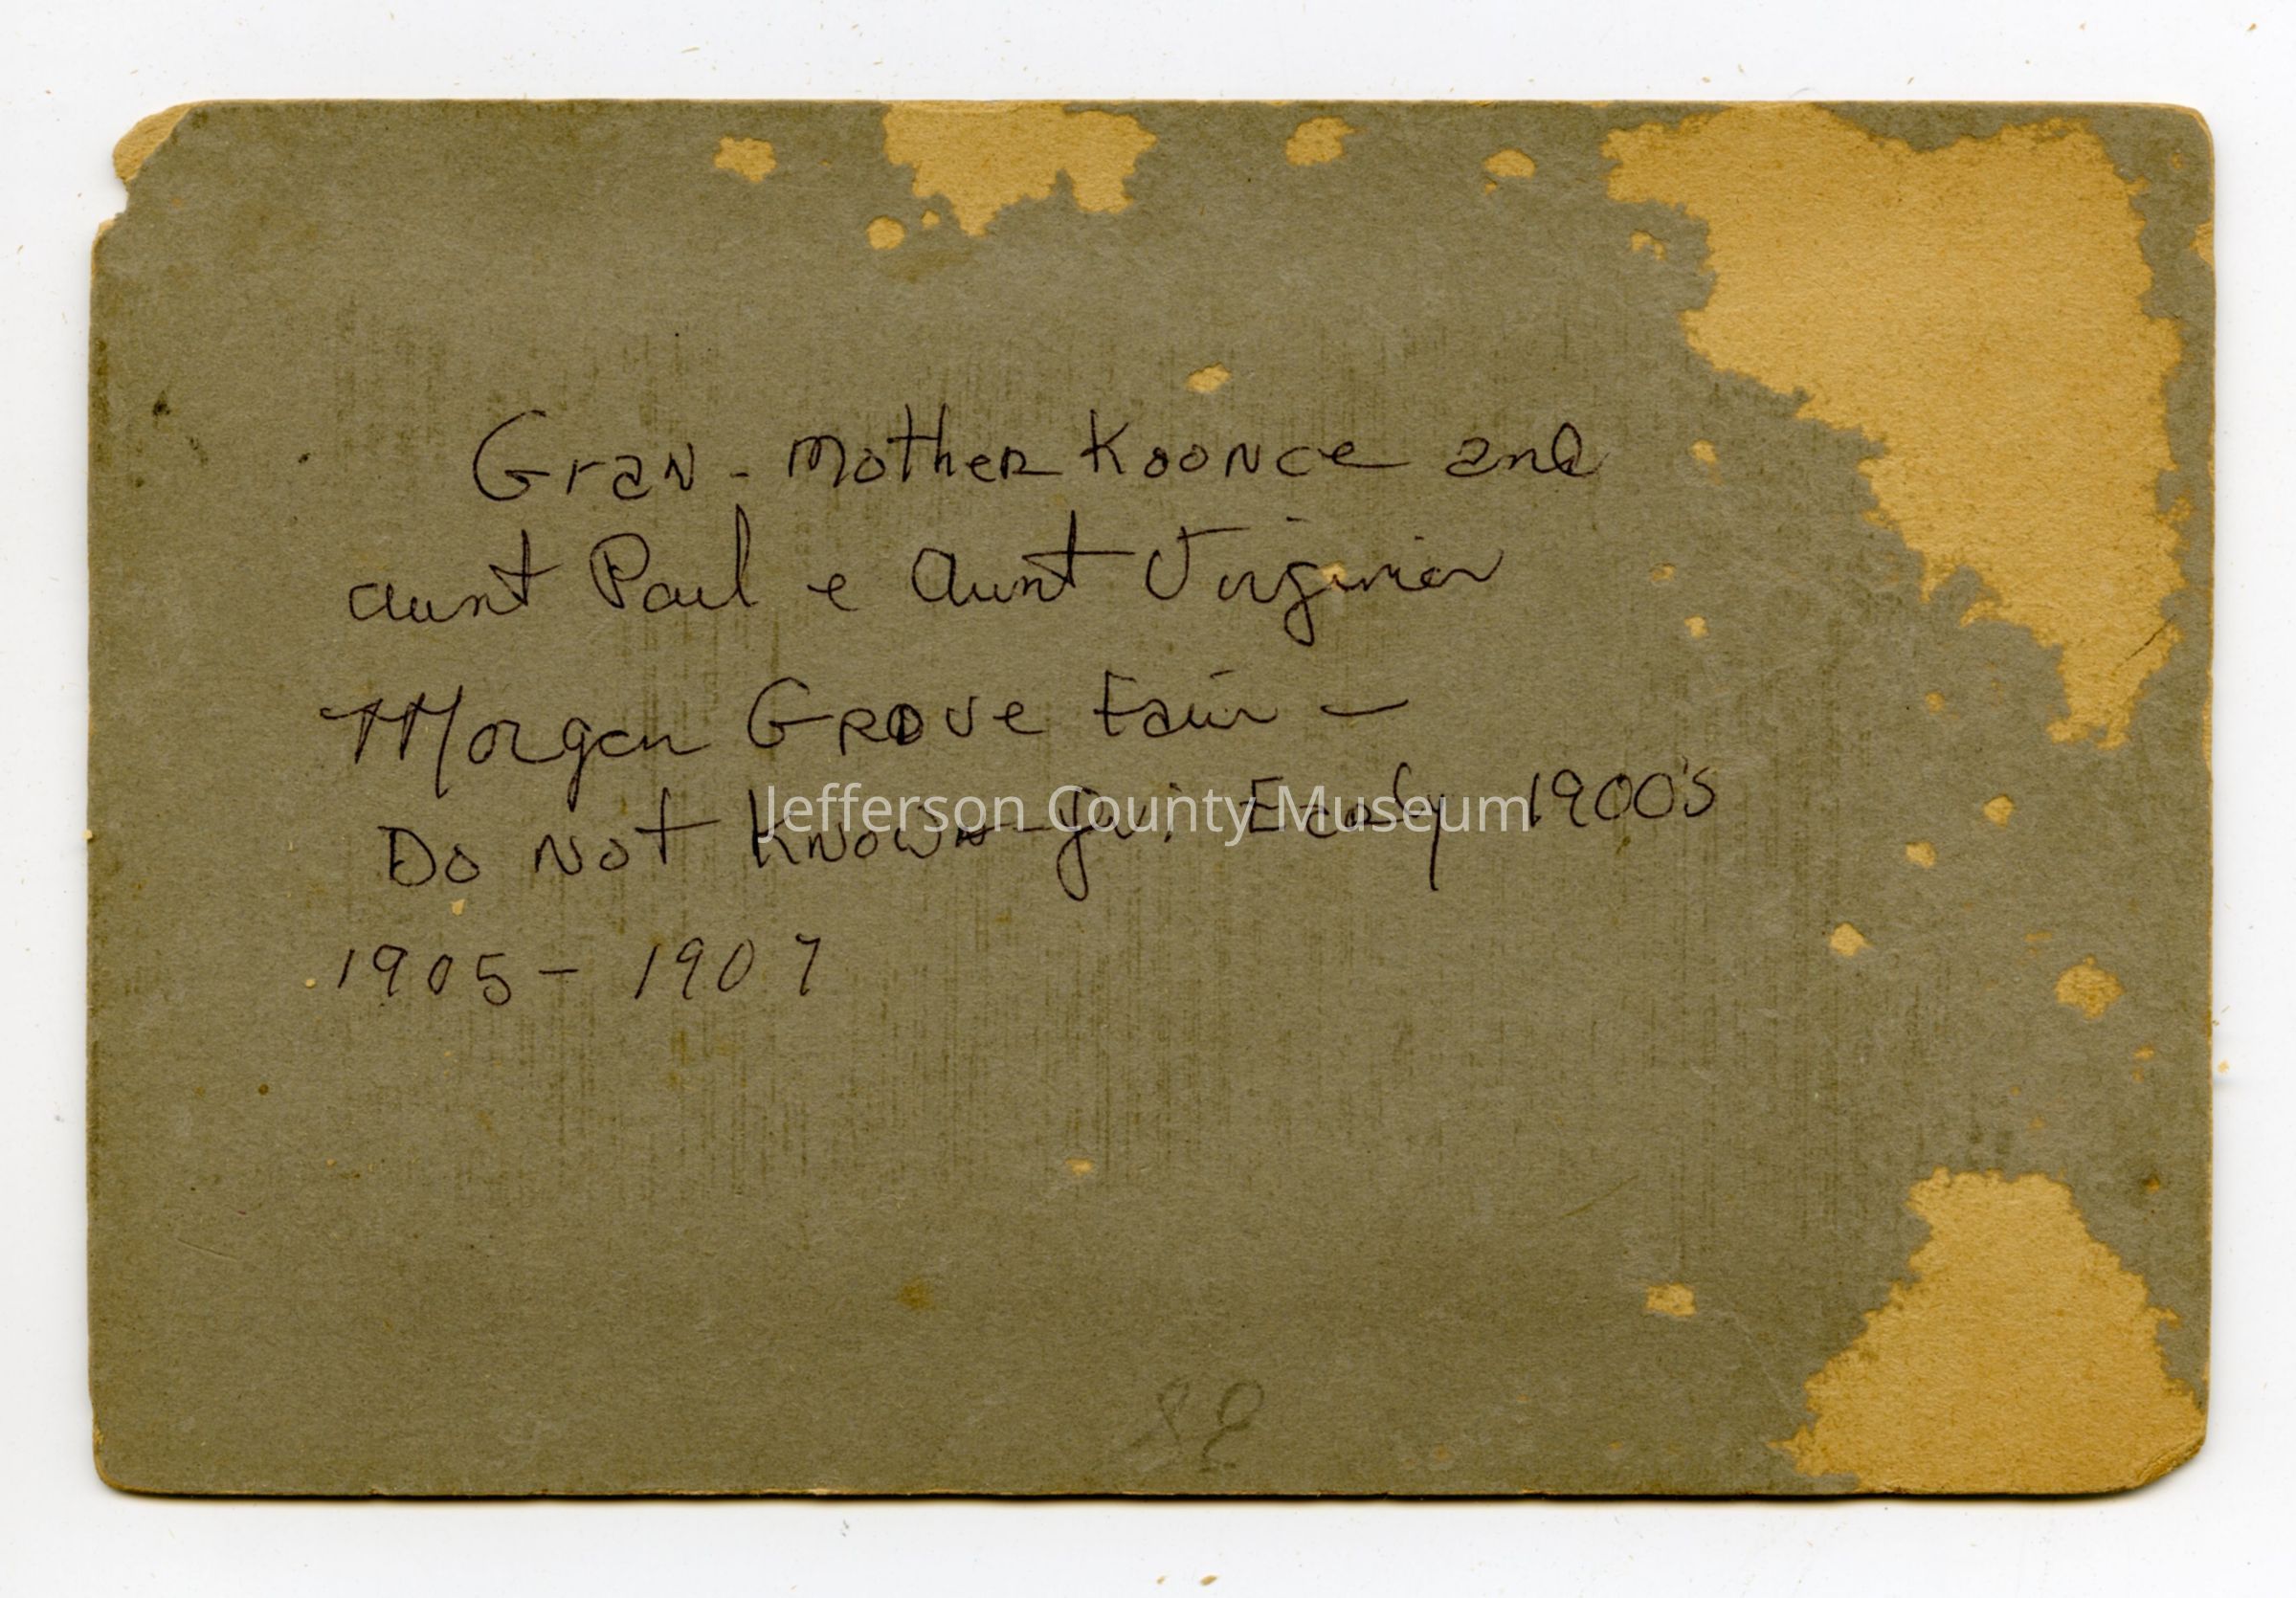 Gran-Mother Koonce and
aunt Paul e Aunt Virginia
Morgan Grove Fair –
Do Not Known – Early 1900's
Jefferson County Museum
1905 – 1907